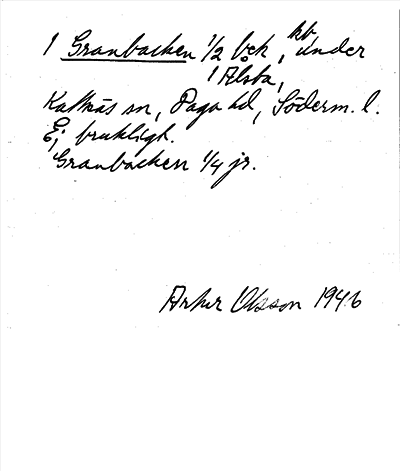 1 Granbacken 1/2 bek, hb. under
1 Ålsta,
Kattnäs sn, Daga hd, Söderm. l.
Ej brukligt.
Granbacken 1/4 jr.
Artur Olsson 1946